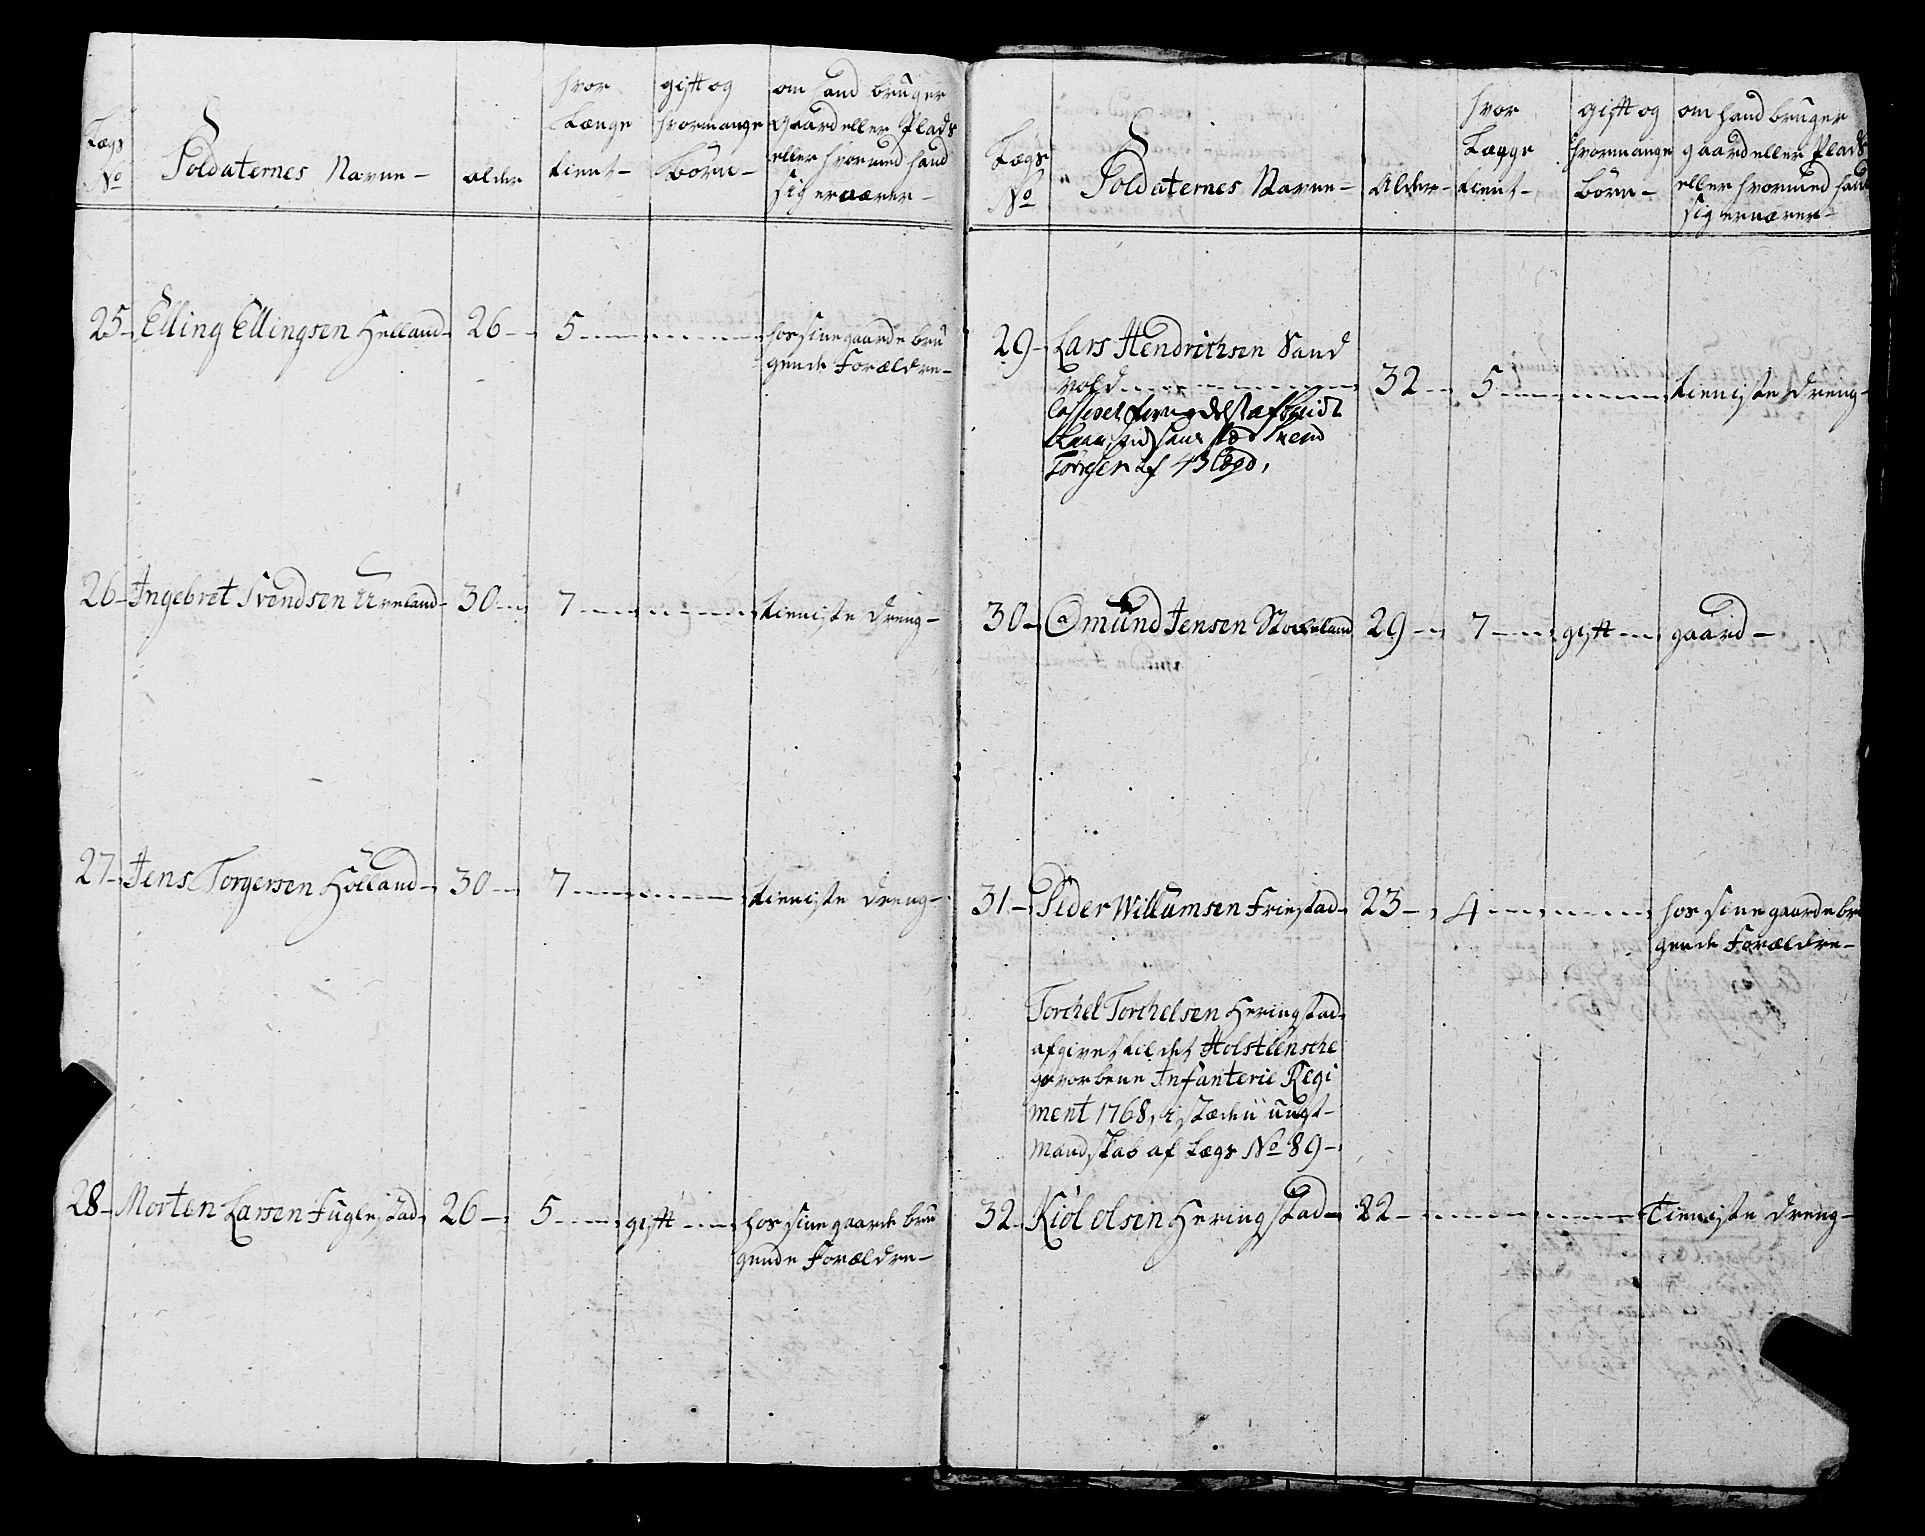 Lægs No
Soldaternes Navne-
alder
hvor Længe tient-
gift og hvormange Børn-
om hand bruger
gaard eller Plads
eller hvormed hand
sig ernærer-
25- Elling Ellingsen Helland- 26- 5- hos sine gaarde bru
gende Forældre-
26- Ingebret Svendsen Ureland- 30- 7- tieniste dreng-
27- Jens Torgersen Hölland- 30- 7- tieniste dreng-
28- Morten Larsen Fuglestad- 26- 5- gift- hos sine gaarde bru
gende Forældre-
Lægs No
Soldaternes Navne-
Alder-
hvor Længe tient-
gift og hvormange Børn-
om hand bruger
gaard eller Plads
eller hvormed hand
sig ernærer-
29- Lars Hendrichsen Sand
vold- 32- 5- tieniste dreng-
Tørresen af 43 Lægd,
30- Omund Jensen Stockeland 29- 7- gift- gaard-
31- Peder Willumsen Friestad- 23- 4- hos sine gaarde bru
gende Forældre-
Torchel Torchelsen Heringstad-
afgivet til det Holsteensche
gevorbene Infanterie Regi
ment 1768, i stæden ungt-
mandskab af Lægs No 89-
32- Kiöl olsen Heringstad- 22- Tieniste dreng-